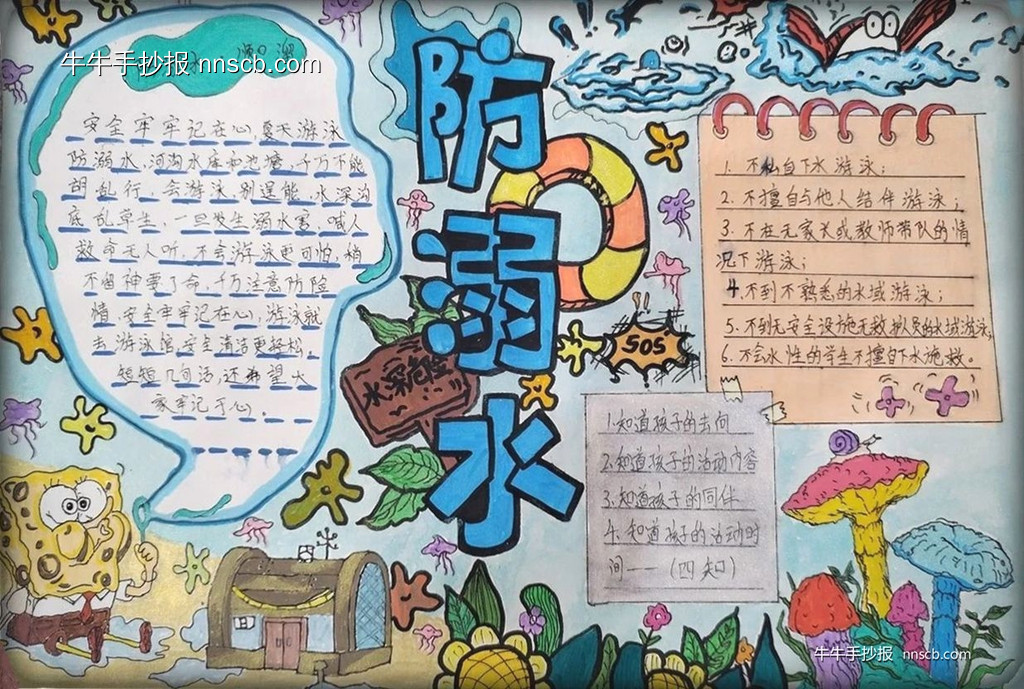 牛牛手抄报 nnscb.com
顺口溜
安全牢牢记在心,夏天游泳
防溺水,河沟水库和池塘,千万不能
胡乱行,会游泳别逞能,水深沟
底乱草生,一旦发生溺水害,喊人
救命无人听,不会游泳更可怕,稍
不留神要了命,千万注意防险
情,安全牢牢记在心,游泳就
去游泳馆,安全清洁更轻松,
短短几句话,还希望大
家牢记于心。
防溺水
水深危险
SOS
1. 不私自下水游泳;
2. 不擅自与他人结伴游泳;
3. 不在无家长或教师带队的情
况下游泳;
4. 不到不熟悉的水域游泳;
5. 不到无安全设施无救护人员的水域游泳,
6. 不会水性的学生不擅自下水施救。
1.知道孩子的去向
2.知道孩子的活动内容
3.知道孩子的同伴
4.知道孩子的活动时
间——(四知)
牛牛手抄报 nnscb.com